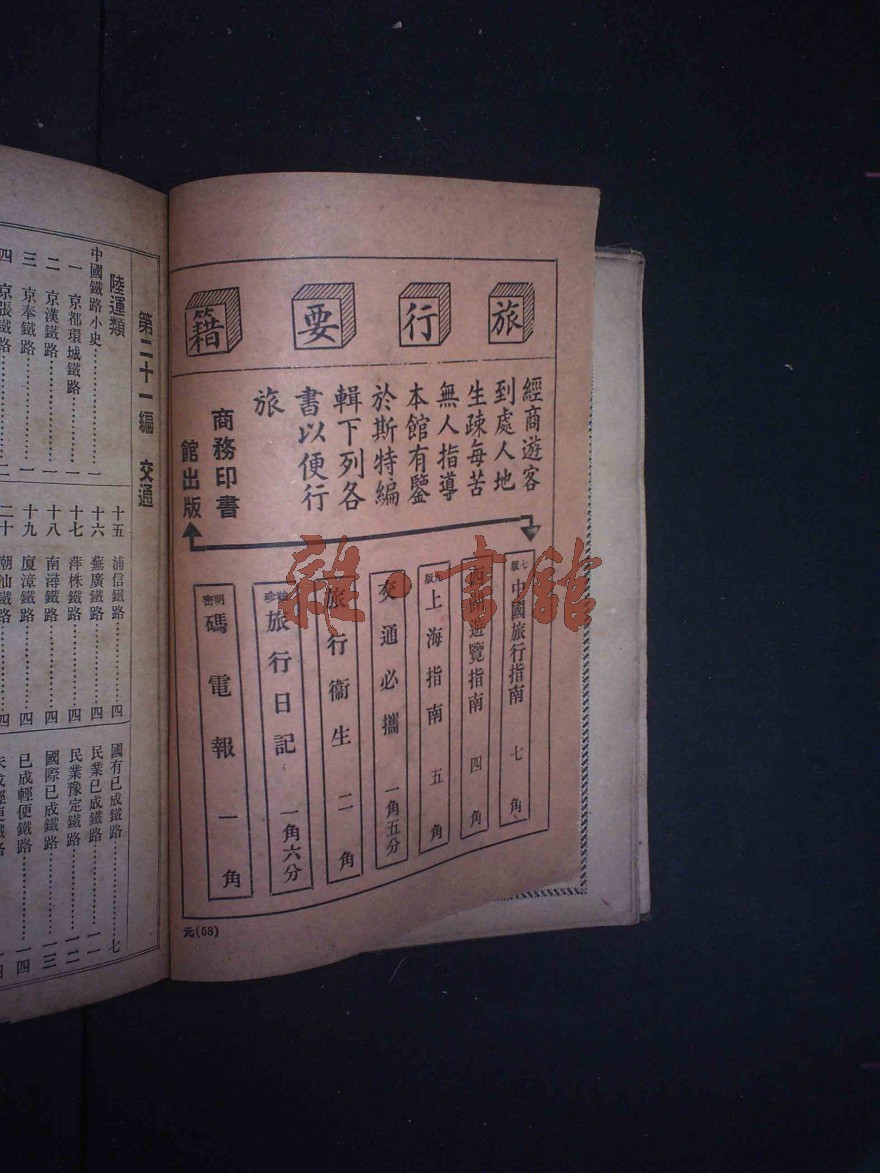 旅行要籍
經商遊客
到處人地
生疎每苦
無人指導
本館有鑒
於斯特編
輯下列各
書以便行
旅
商務印書
館出版
七版 中國旅行指南 七角
西湖遊覽指南 四角
上海指南 五角
交通必攜 一角五分
旅行衞生 二角
袖珍 旅行日記 一角六分
明密 碼電報 一角
元(58)
第二十一編 交通
陸運類
中國鐵路小史 一
一 京都環城鐵路 一
二 京漢鐵路 一
三 京奉鐵路 一
四 京張鐵路 二
十五 浦信鐵路 四
十六 蕪廣鐵路 四
十七 萍株鐵路 四
十八 南潯鐵路 四
十九 廈漳鐵路 四
二十 潮汕鐵路 四
國有已成鐵路 七
民業已成鐵路 一一
民業豫定鐵路 一二
國際已成鐵路 一三
已成輕便鐵路 一四
雜·書館